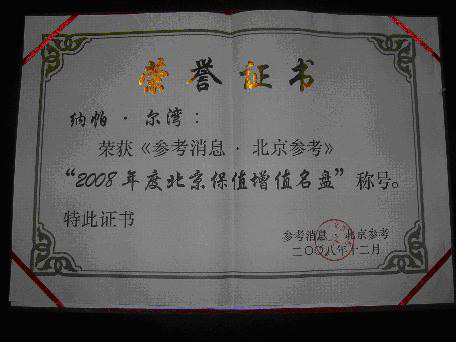 荣誉证书
纳帕·尔湾：
荣获《参考消息·北京参考》
“2008年度北京保值增值名盘”称号。
特此证书
参考消息 北京参考
二〇〇八年十二月